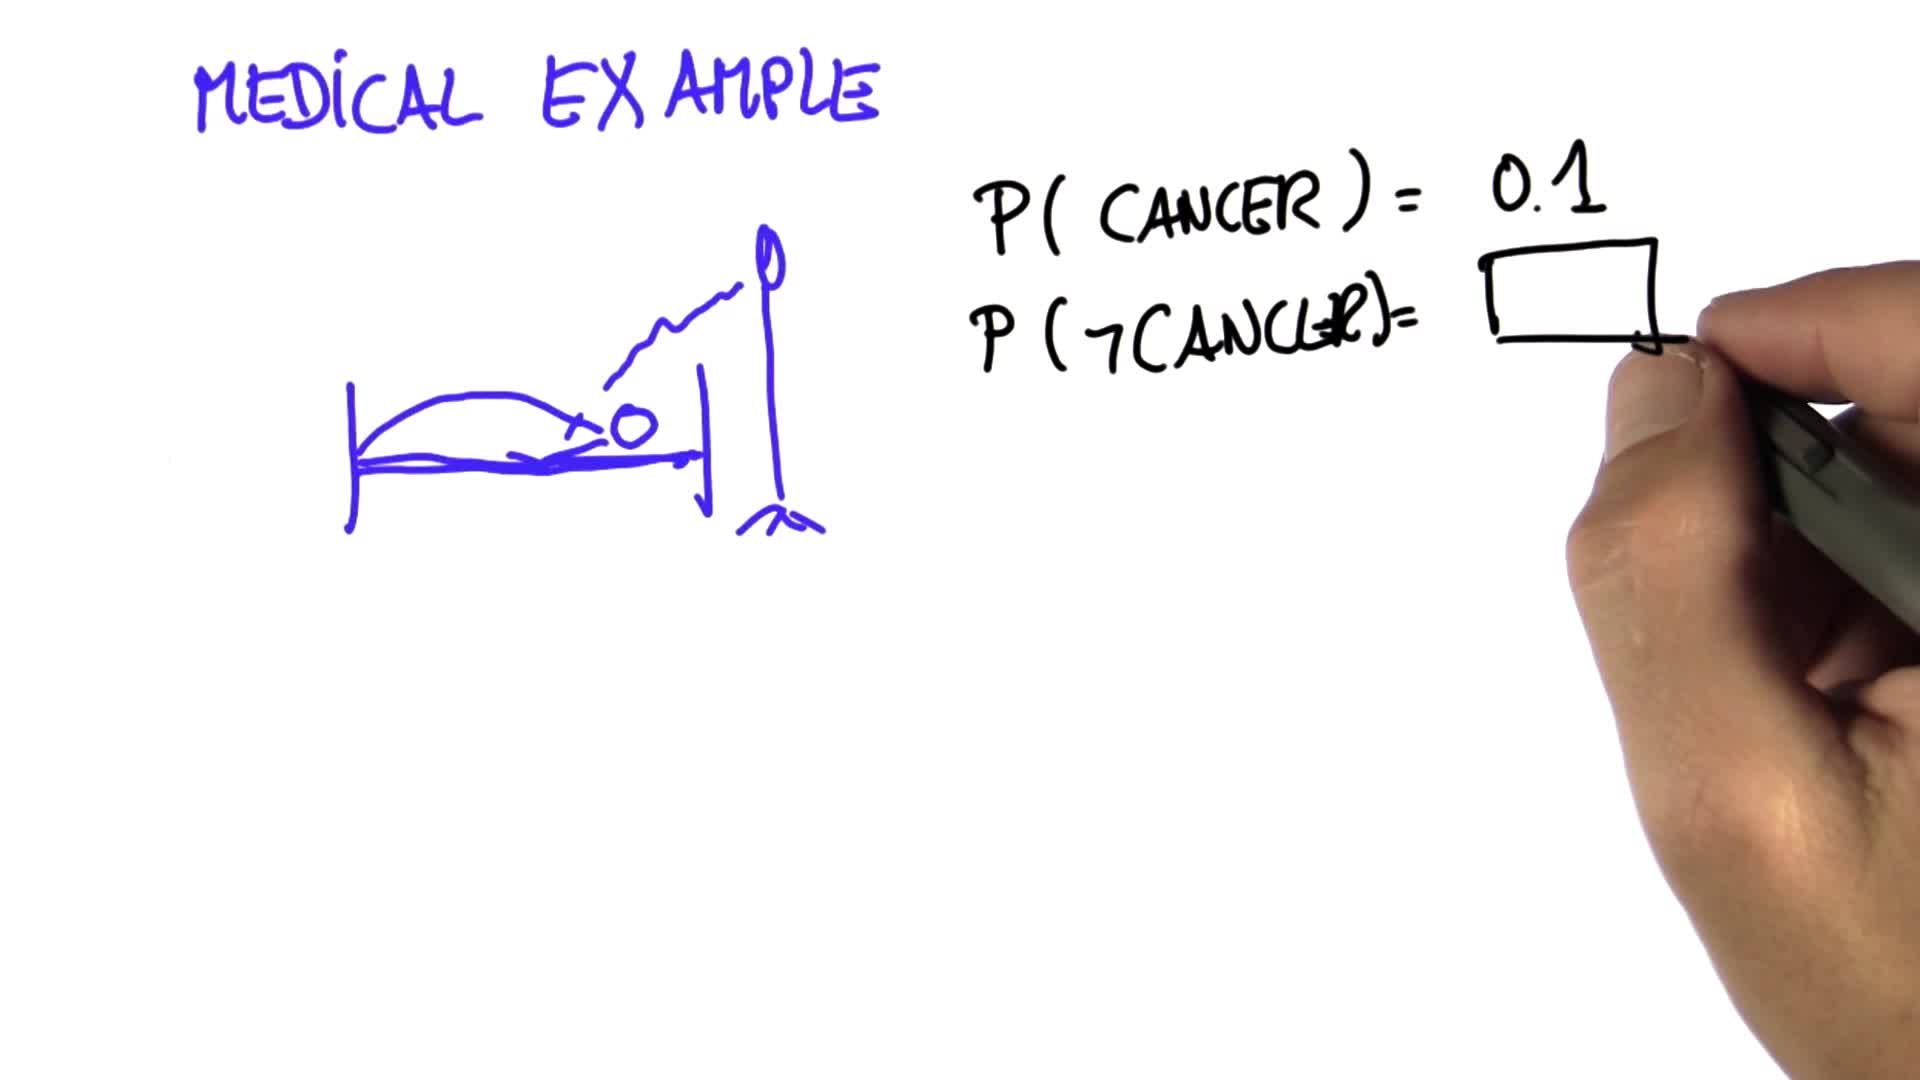 MEDICAL EXAMPLE
P( CANCER ) = 0.1
P (¬CANCER) =